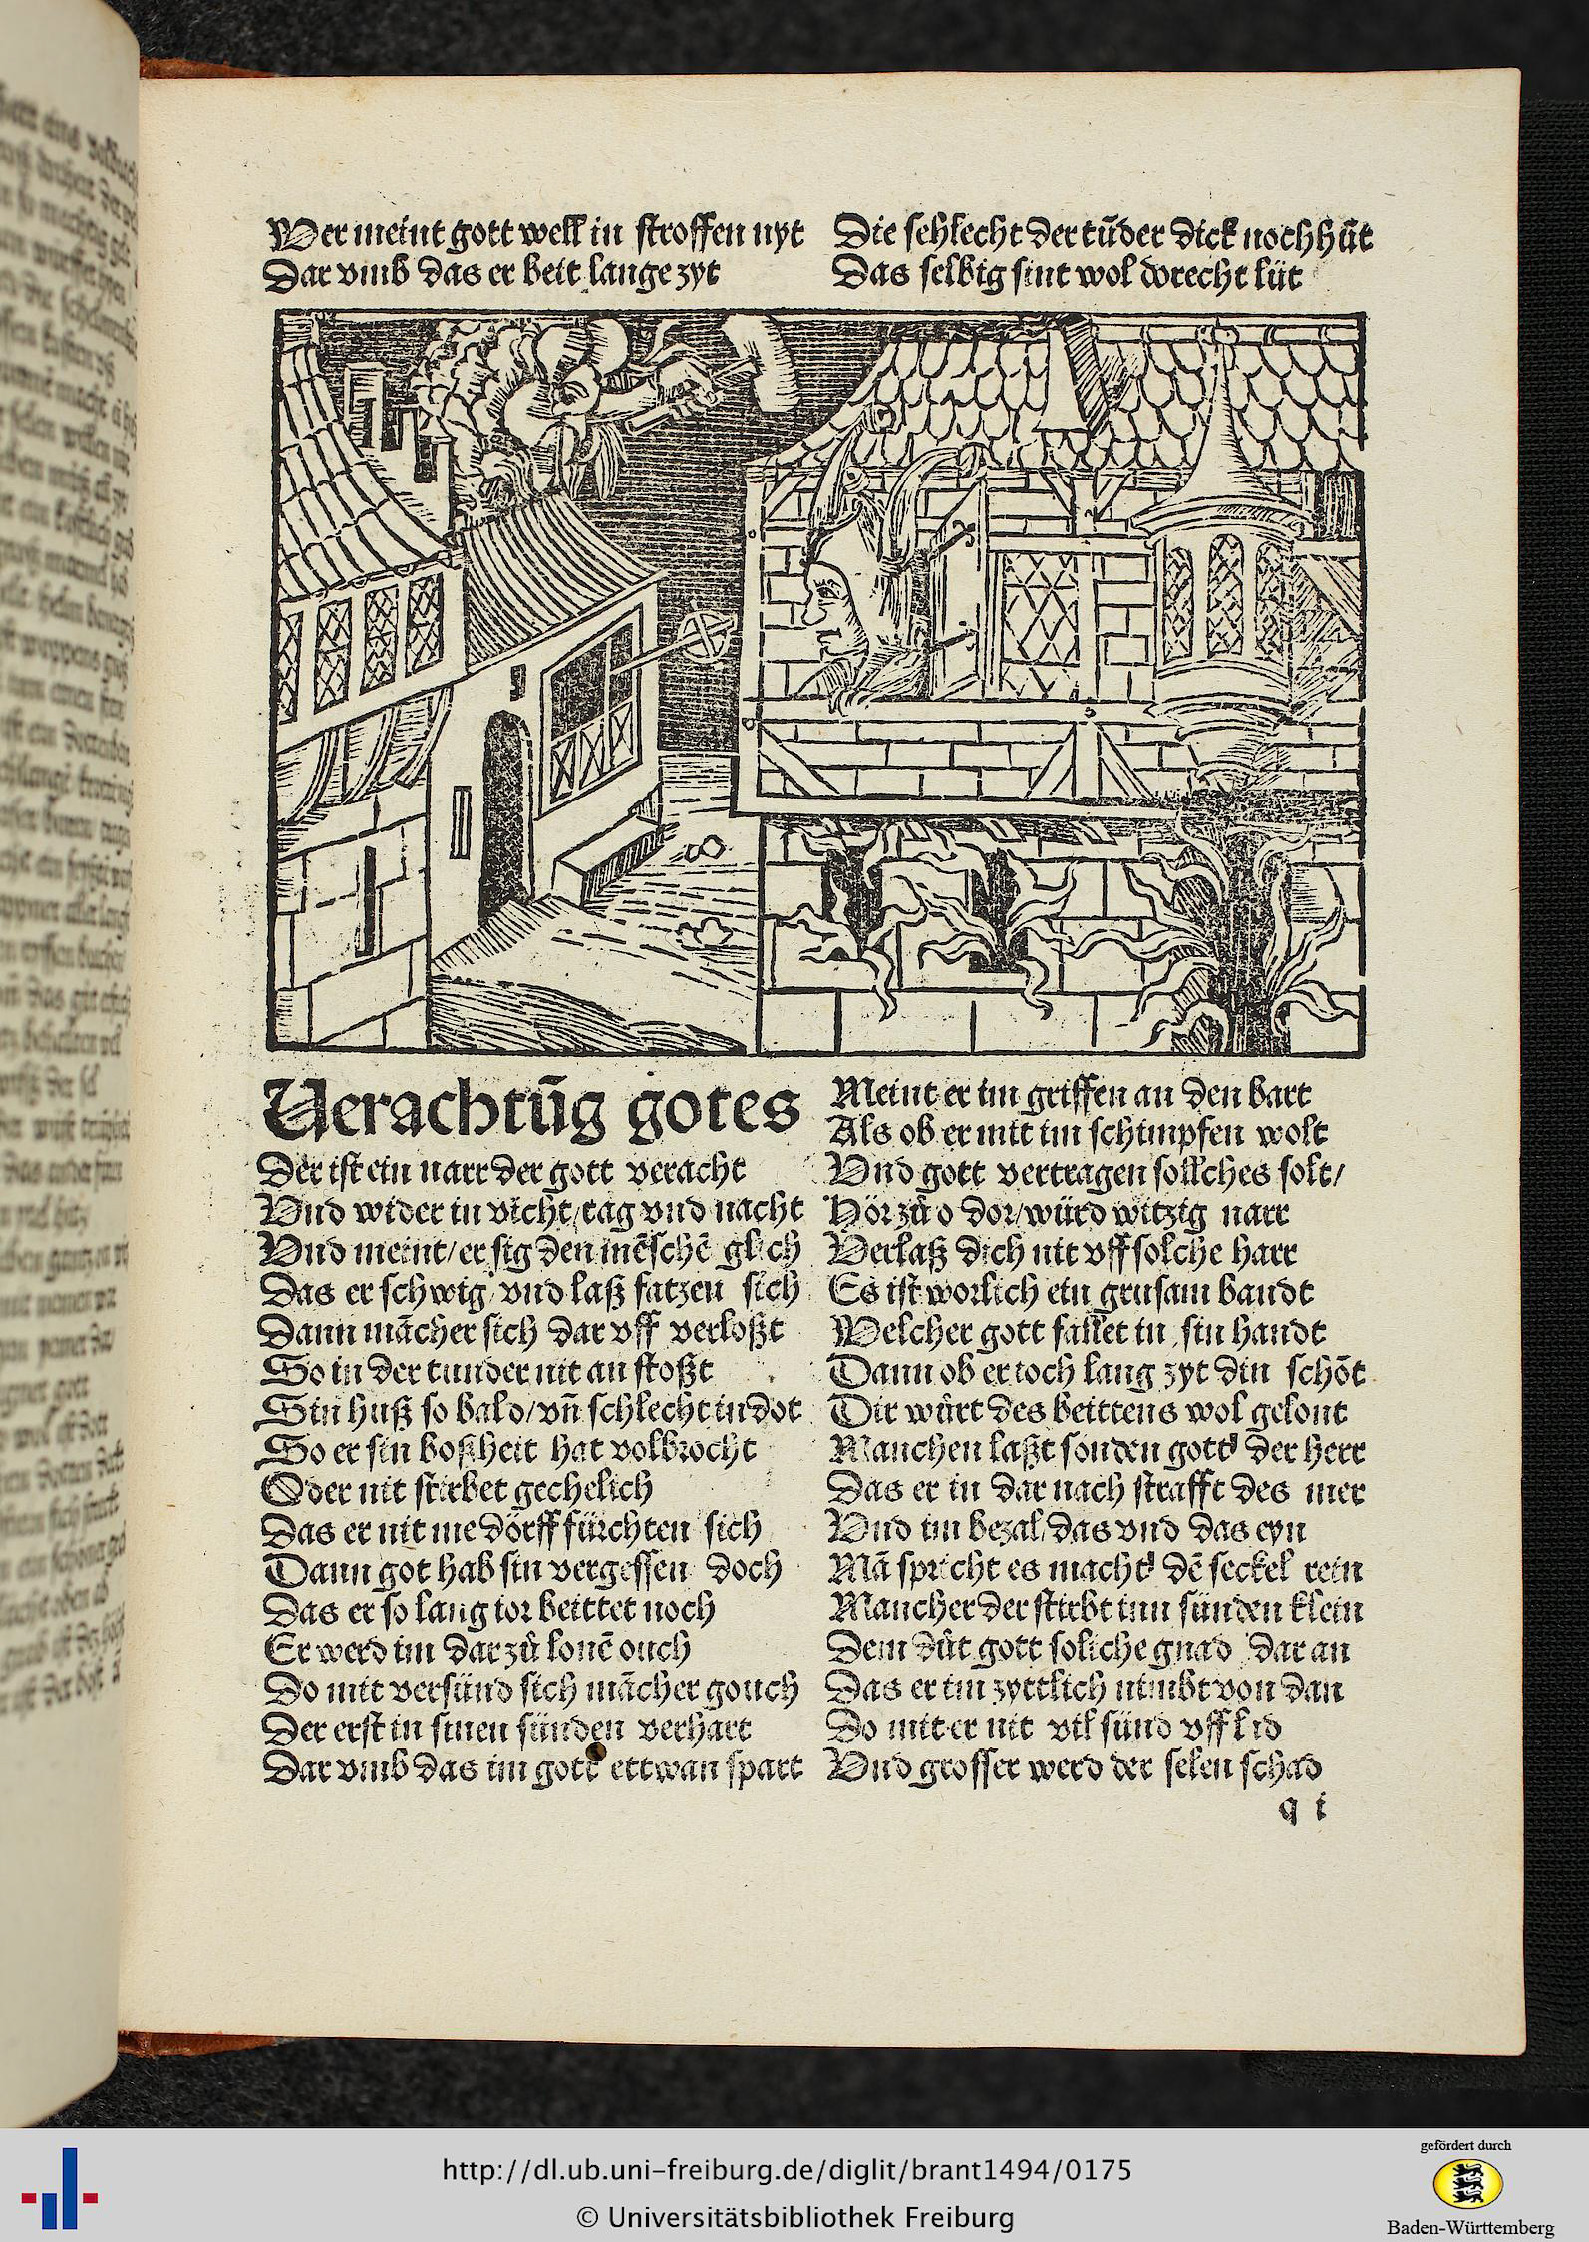 Wer meint gott well in stroffen nyt
Dar vmb das er beit lange zyt
Die schlecht der tūder dick noch hüt
Das selbig sint wol dorecht lüt
Verachtūg gotes
Der ist ein narr der gott veracht
Vnd wider in vicht / tag vnd nacht
Vnd meint / er sig den mēschē glich
Das er schwig / vnd laß fatzen sich
Dann mācher sich dar vff verloßt
So in der tunder nit an stoßt
Sin huß so bald / vn̄ schlecht in dot
So er sin boßheit hat volbrocht
Oder nit stirbet gechelich
Das er nit me dörff fürchten sich
Dann got hab sin vergessen doch
Das er so lang ior beittet noch
Er werd im dar zů lonē ouch
Do mit versünd sich mācher gouch
Der erst in sinen sünden verhart
Dar vmb das im gott ettwan spart
Meint er im griffen an den bart
Als ob er mit im schimpfen wolt
Vnd gott vertragen sollches solt /
Hör zů o dor / würd witzig narr
Verlaß dich nit vff solche harr
Es ist worlich ein grusam bandt
Welcher gott fallet in sin handt
Dann ob er ioch lang zyt din schōt
Dir würt des beittens wol gelont
Manchen laßt sonden gott der herr
Das er in dar nach strafft des mer
Vnd im bezal / das vnd das eyn
Mā spricht es macht dē seckel rein
Mancher der stirbt inn sünden klein
Dem důt gott soliche gnad dar an
Das er im zyttlich nimbt von dan
Do mit er nit vil sünd vff lad
Vnd grosser werd der selen schad
q i
http://dl.ub.uni-freiburg.de/diglit/brant1494/0175
© Universitätsbibliothek Freiburg
gefördert durch
Baden-Württemberg